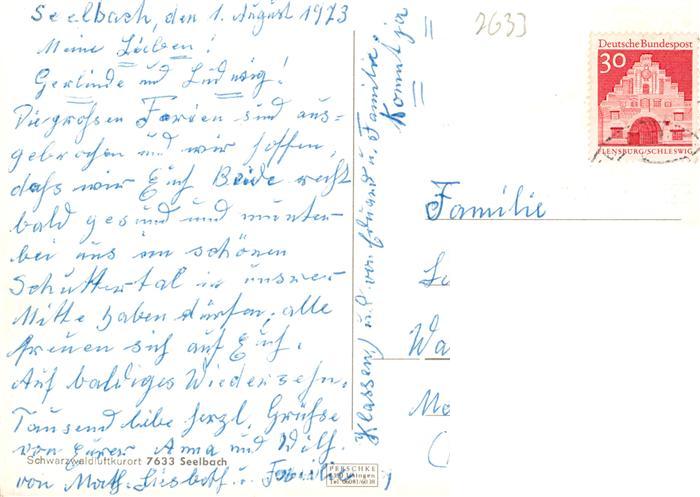 Seelbach, den 1. August 1973
Meine Lieben!
Gerlinde und Ludwig!
Die grossen Ferien sind aus=
gebrochen und wir hoffen,
dass wir Euch Beide recht
bald gesund und munter
bei uns im schönen
Schuttertal in unsrer
Mitte haben dürfen, alle
freuen sich auf Euch.
Auf baldiges Wiedersehn.
Tausend liebe herzl. Grüsse
von Eurer Anna und Wilh.
von Math. Liesbeth u. Familie
Klassen, und von Eduard u. Familie.
Kommt ja
Schwarzwaldluftkurort 7633 Seelbach
PERSCHKE
Tel.
2633
Deutsche Bundespost
30
FLENSBURG/SCHLESWIG
Familie